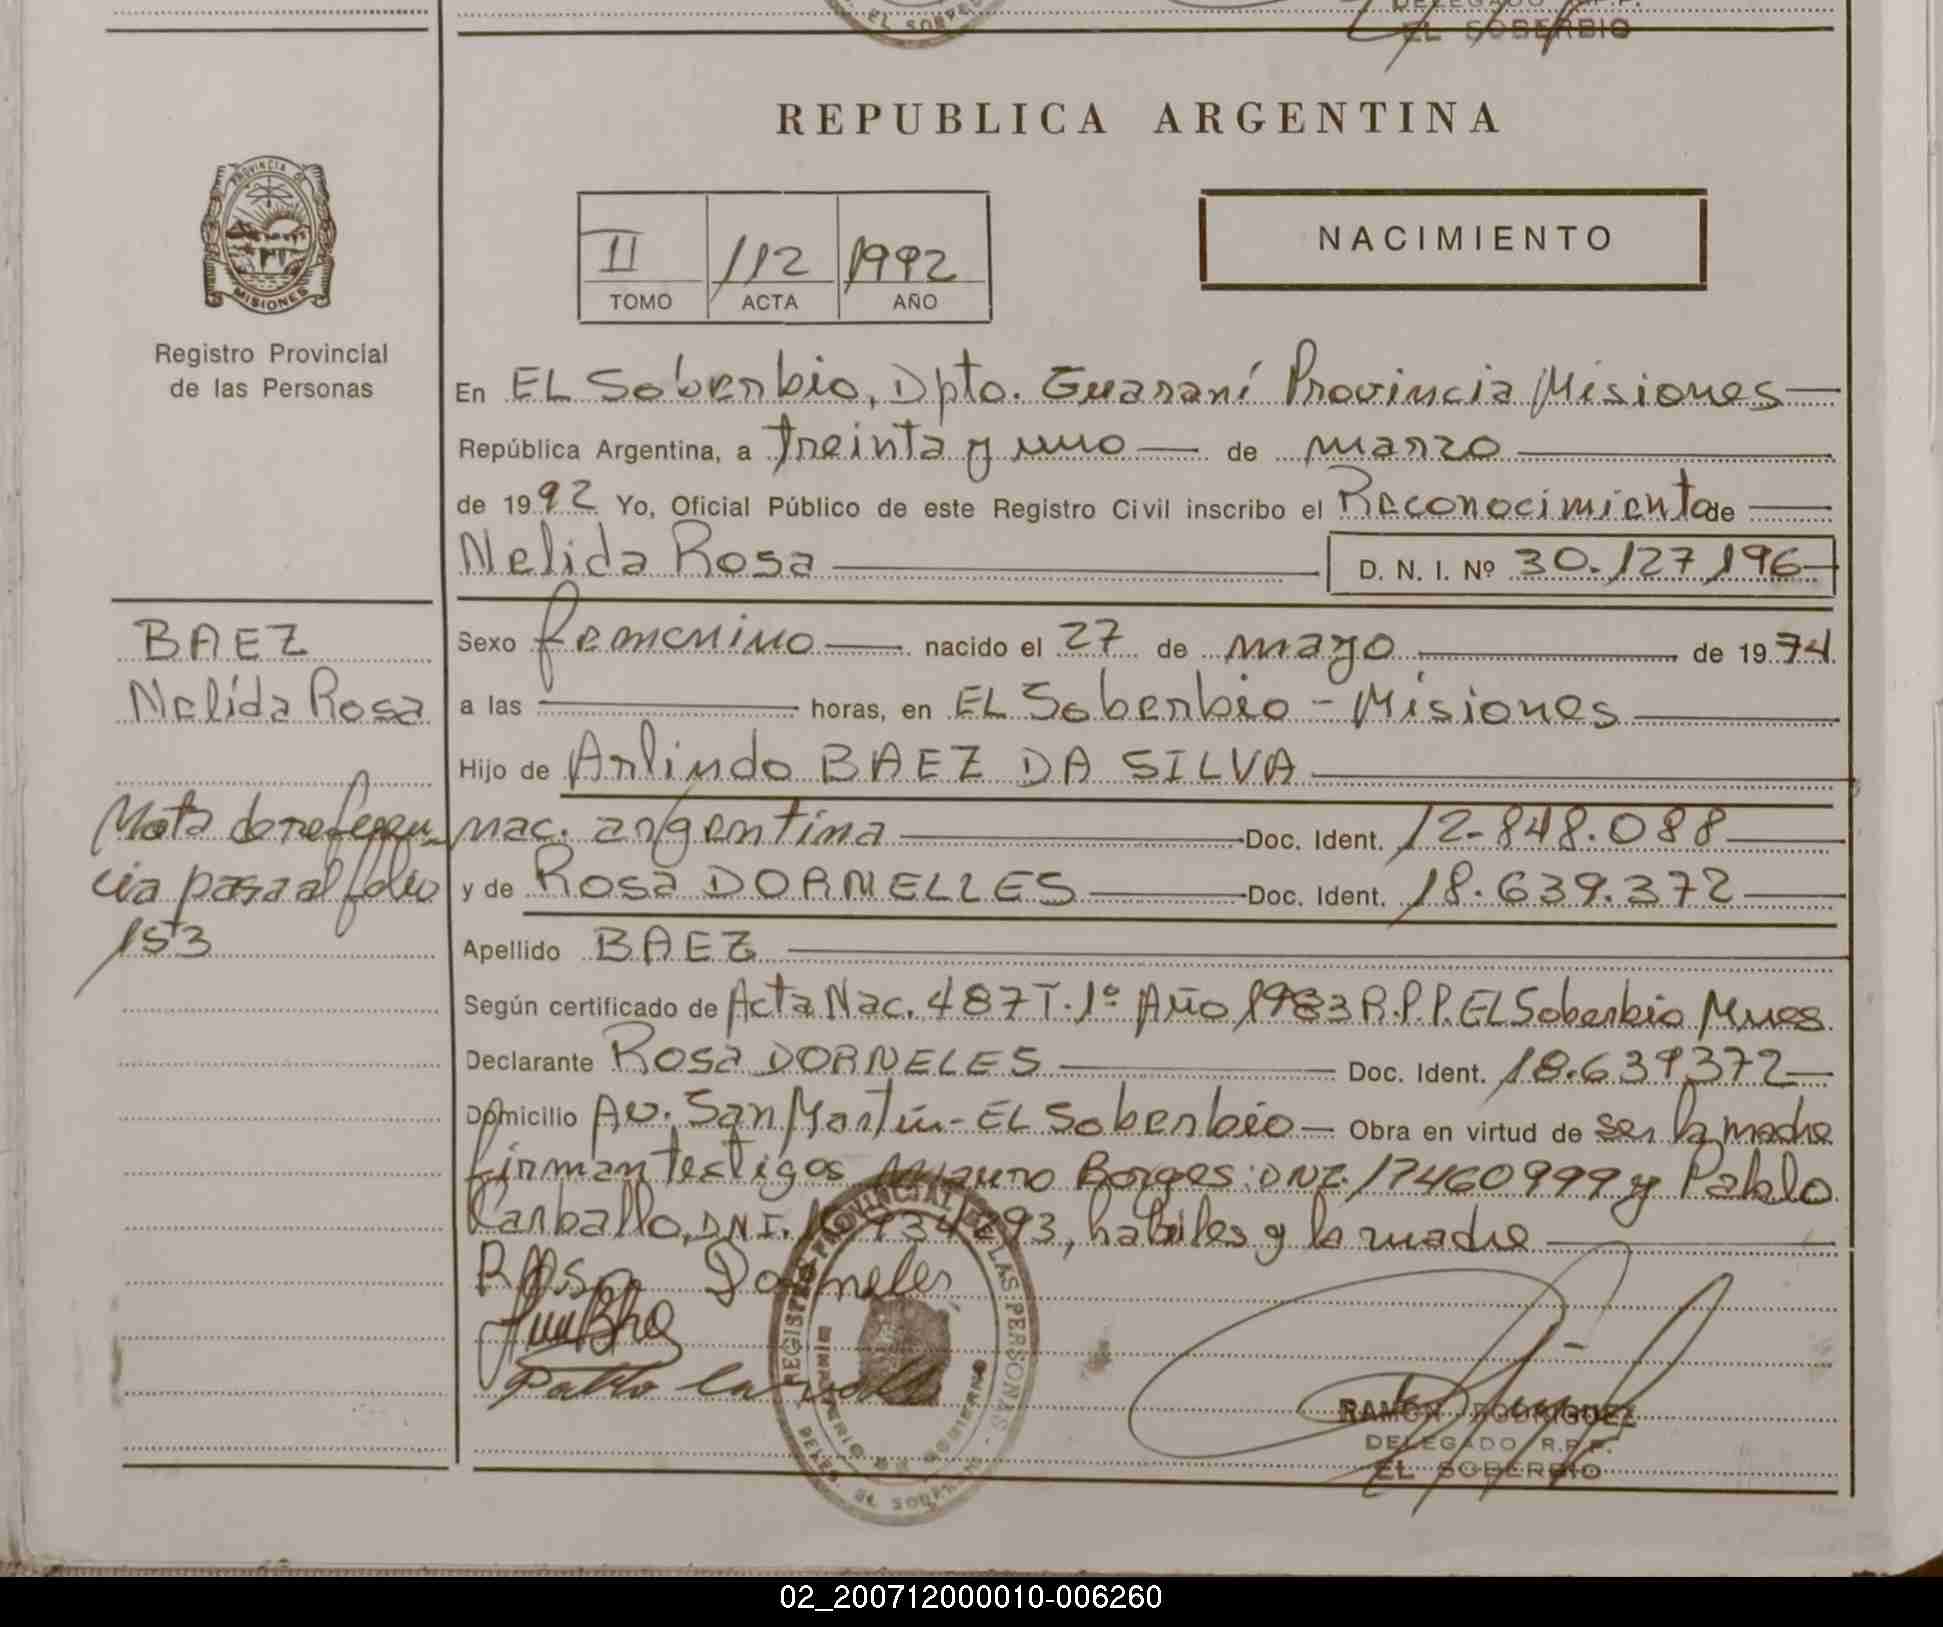 DELEGADO R.P.P.
EL SOBERBIO
REPUBLICA ARGENTINA
PROVINCIA DE
MISIONES
Registro Provincial
de las Personas
II /112 1992
TOMO ACTA AÑO
NACIMIENTO
En EL Soberbio, Dpto. Guaraní Provincia Misiones
República Argentina, a treinta y uno de marzo
de 1992 Yo, Oficial Público de este Registro Civil inscribo el Reconocimiento de
Nelida Rosa D. N. I. Nº 30.127.196
BAEZ
Nelida Rosa
Nota de referen-
cia pasa al folio
153
Sexo femenino nacido el 27 de mayo de 1974
a las horas, en EL Soberbio - Misiones
Hijo de Arlindo BAEZ DA SILVA
nac. argentina Doc. Ident. 12.848.088
y de Rosa DORNELLES Doc. Ident. 18.639.372
Apellido BAEZ
Según certificado de Acta Nac. 487 T. 1º Año 1983 R.P.P. EL Soberbio Mnes.
Declarante Rosa DORNELES Doc. Ident. 18.639372
Domicilio Av. San Martín - EL Soberbio Obra en virtud de ser la madre
firman testigos Mauro Borges: DNI. 17460999 y Pablo
Carballo, DNI. 934293, habiles y la madre
Rosa Dorneles
Pablo
REGISTRO PROVINCIAL DE LAS PERSONAS
RAMON RODRIGUEZ
DELEGADO R.P.P.
EL SOBERBIO
02_200712000010-006260